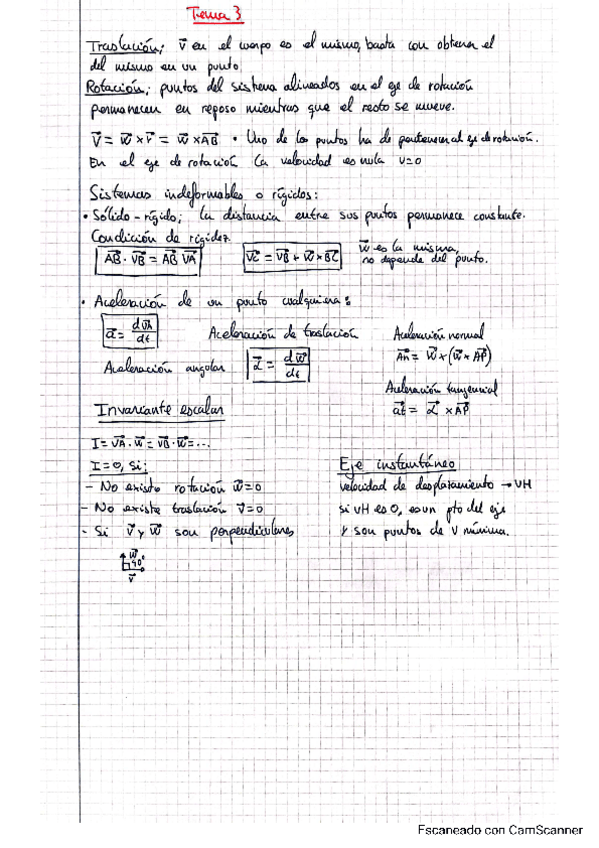 Tema 3
Traslación; v⃗ en el cuerpo es el mismo, basta con obtener el
del mismo en un punto
Rotación; puntos del sistema alineados en el eje de rotación
permanecen en reposo mientras que el resto se mueve.
V⃗ = w⃗ x r⃗ = w⃗ x AB⃗ • Uno de los puntos ha de pertenecer al eje de rotación.
En el eje de rotación la velocidad es nula v=0
Sistemas indeformables o rígidos:
• Sólido-rígido; la distancia entre sus puntos permanece constante.
Condición de rigidez
AB⃗ · VB⃗ = AB⃗ VA⃗
VC⃗ = VB⃗ + w⃗ x BC⃗
w⃗ es la misma,
no depende del punto.
• Aceleración de un punto cualquiera:
a⃗ = dVA⃗/dt Aceleración de traslación
Aceleración angular α⃗ = dw⃗/dt
Aceleración normal
An⃗ = w⃗ x (w⃗ x AP⃗)
Aceleración tangencial
at⃗ = α⃗ x AP⃗
Invariante escalar
I = VA⃗ · w⃗ = VB⃗ · w⃗ = ...
I = 0, si:
- No existe rotación w⃗=0
- No existe traslación v⃗=0
- Si v⃗ y w⃗ son perpendiculares
w⃗
90°
v⃗
Eje instantáneo
velocidad de desplazamiento → VH
si VH es 0, es un pto del eje
y son puntos de v mínima.
Escaneado con CamScanner